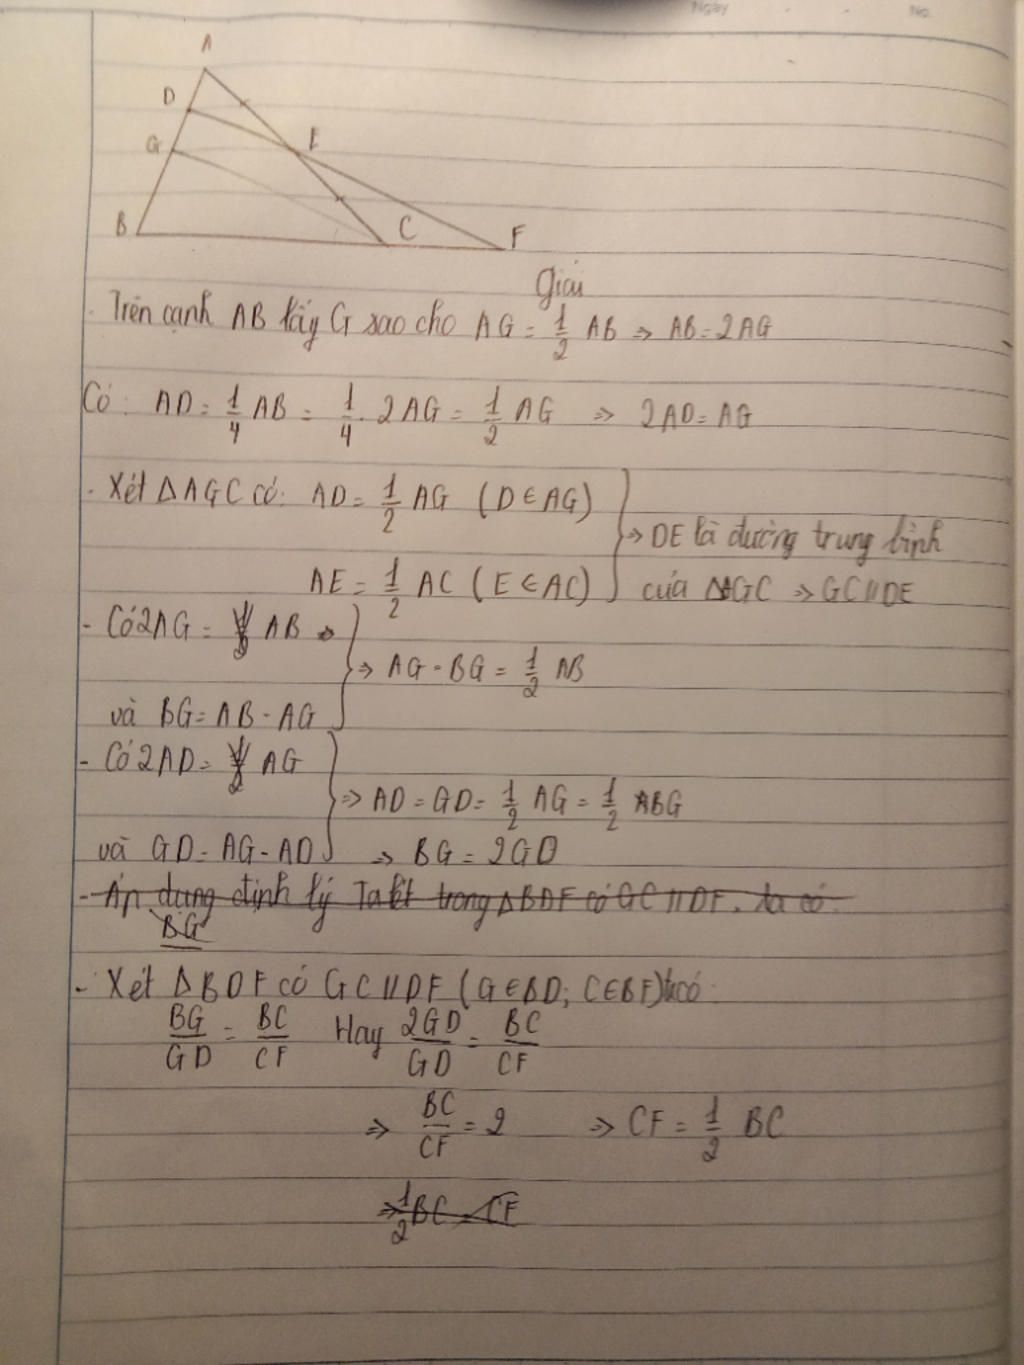 Ngày No.
A
D
E
G
B
C
F
Giải
- Trên cạnh AB lấy G sao cho AG = 1/2 AB => AB = 2AG
Có: AD = 1/4 AB = 1/4 . 2AG = 1/2 AG => 2AD = AG
- Xét ΔAGC có: AD = 1/2 AG (D ∈ AG)
=> DE là đường trung bình
AE = 1/2 AC (E ∈ AC)
của ΔAGC => GC // DE
- Có 2AG = AB
=> AG = BG = 1/2 AB
và BG = AB - AG
- Có 2AD = AG
=> AD = GD = 1/2 AG = 1/2 BG
và GD = AG - AD => BG = 2GD
- Áp dụng định lý Talét trong ΔBDF có GC // DF, ta có
BG
- Xét ΔBDF có GC // DF (G ∈ BD; C ∈ BF) có:
BG/GD = BC/CF Hay 2GD/GD = BC/CF
=> BC/CF = 2 => CF = 1/2 BC
=> 1/2 BC = CF